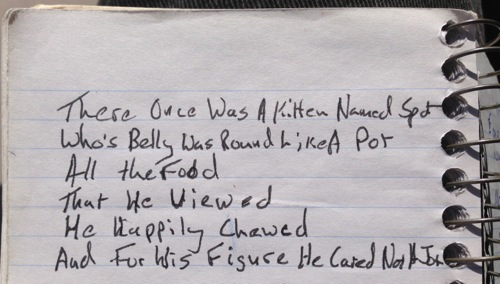 There Once Was A Kitten Named Spot
Who's Belly Was Round Like A Pot
All the Food
That He Viewed
He Happily Chewed
And For His Figure He Cared Not A